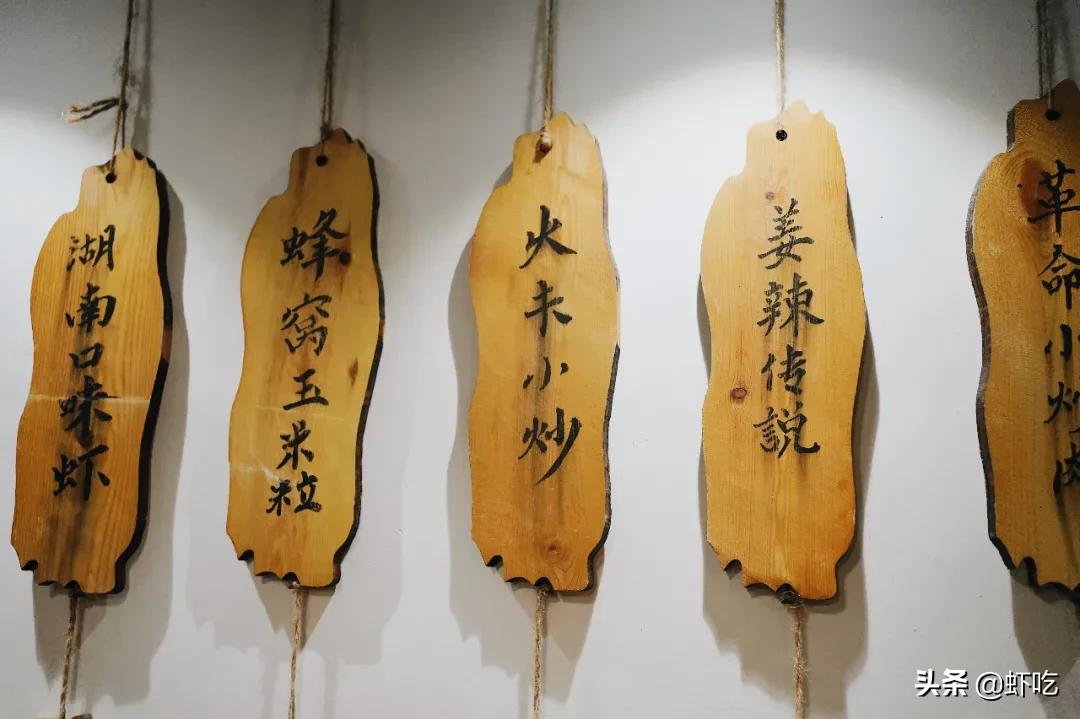 湖南口味虾
蜂窝玉米粒
火未小炒
姜辣传説
革命小炒肉
头条 @虾吃